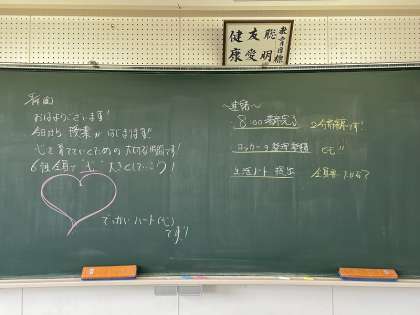 教育目標
聡明
友愛
健康
おはようございます!
今日から 授業が はじまります!
心を育てていくための 大切な時間です!
6組全員で "心" 大きくしていこう!
でっかいハート(心)
です!
8:00 着席完了
2分前着席です!
ロッカーの整理整頓
生活ノート 提出